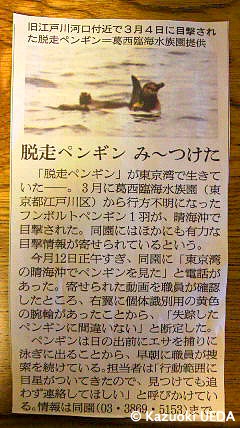 旧江戸川河口付近で3月4日に目撃され
た脱走ペンギン＝葛西臨海水族園提供
脱走ペンギン み〜つけた
「脱走ペンギン」が東京湾で生きて
いた――。3月に葛西臨海水族園（東
京都江戸川区）から行方不明になった
フンボルトペンギン1羽が、晴海沖で
目撃された。同園にはほかにも有力な
目撃情報が寄せられているという。
今月12日正午すぎ、同園に「東京湾
の晴海沖でペンギンを見た」と電話が
あった。寄せられた動画を職員が確認
したところ、右翼に個体識別用の黄色
の腕輪があったことから、「失踪した
ペンギンに間違いない」と断定した。
ペンギンは日の出前にエサを捕りに
泳ぎに出ることから、早朝に職員が捜
索を続けている。担当者は「行動範囲に
目星がついてきたので、見つけても追
わず連絡してほしい」と呼びかけてい
る。情報は同園(03・3869・5153)まで。
© Kazuo UEDA